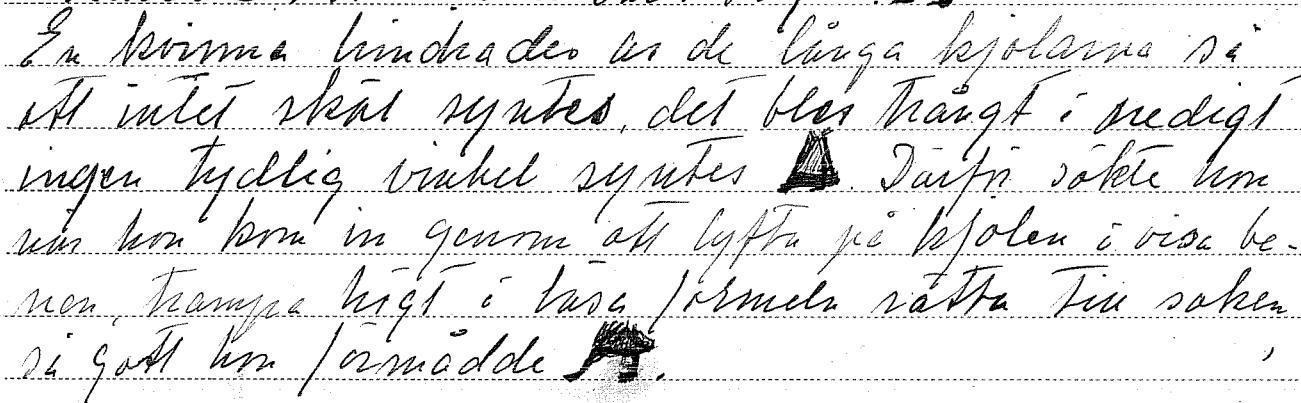 En kvinna hindrades av de långa kjolarna så
att intet skäl syntes, det blev trångt i nedigt
ingen tydlig vinkel syntes. Därför sökte hon
när hon kom in genom att lyfta på kjolen i visa be-
nen, trampa högt i läsa formeln rätta till saken
så gott hon förmådde.